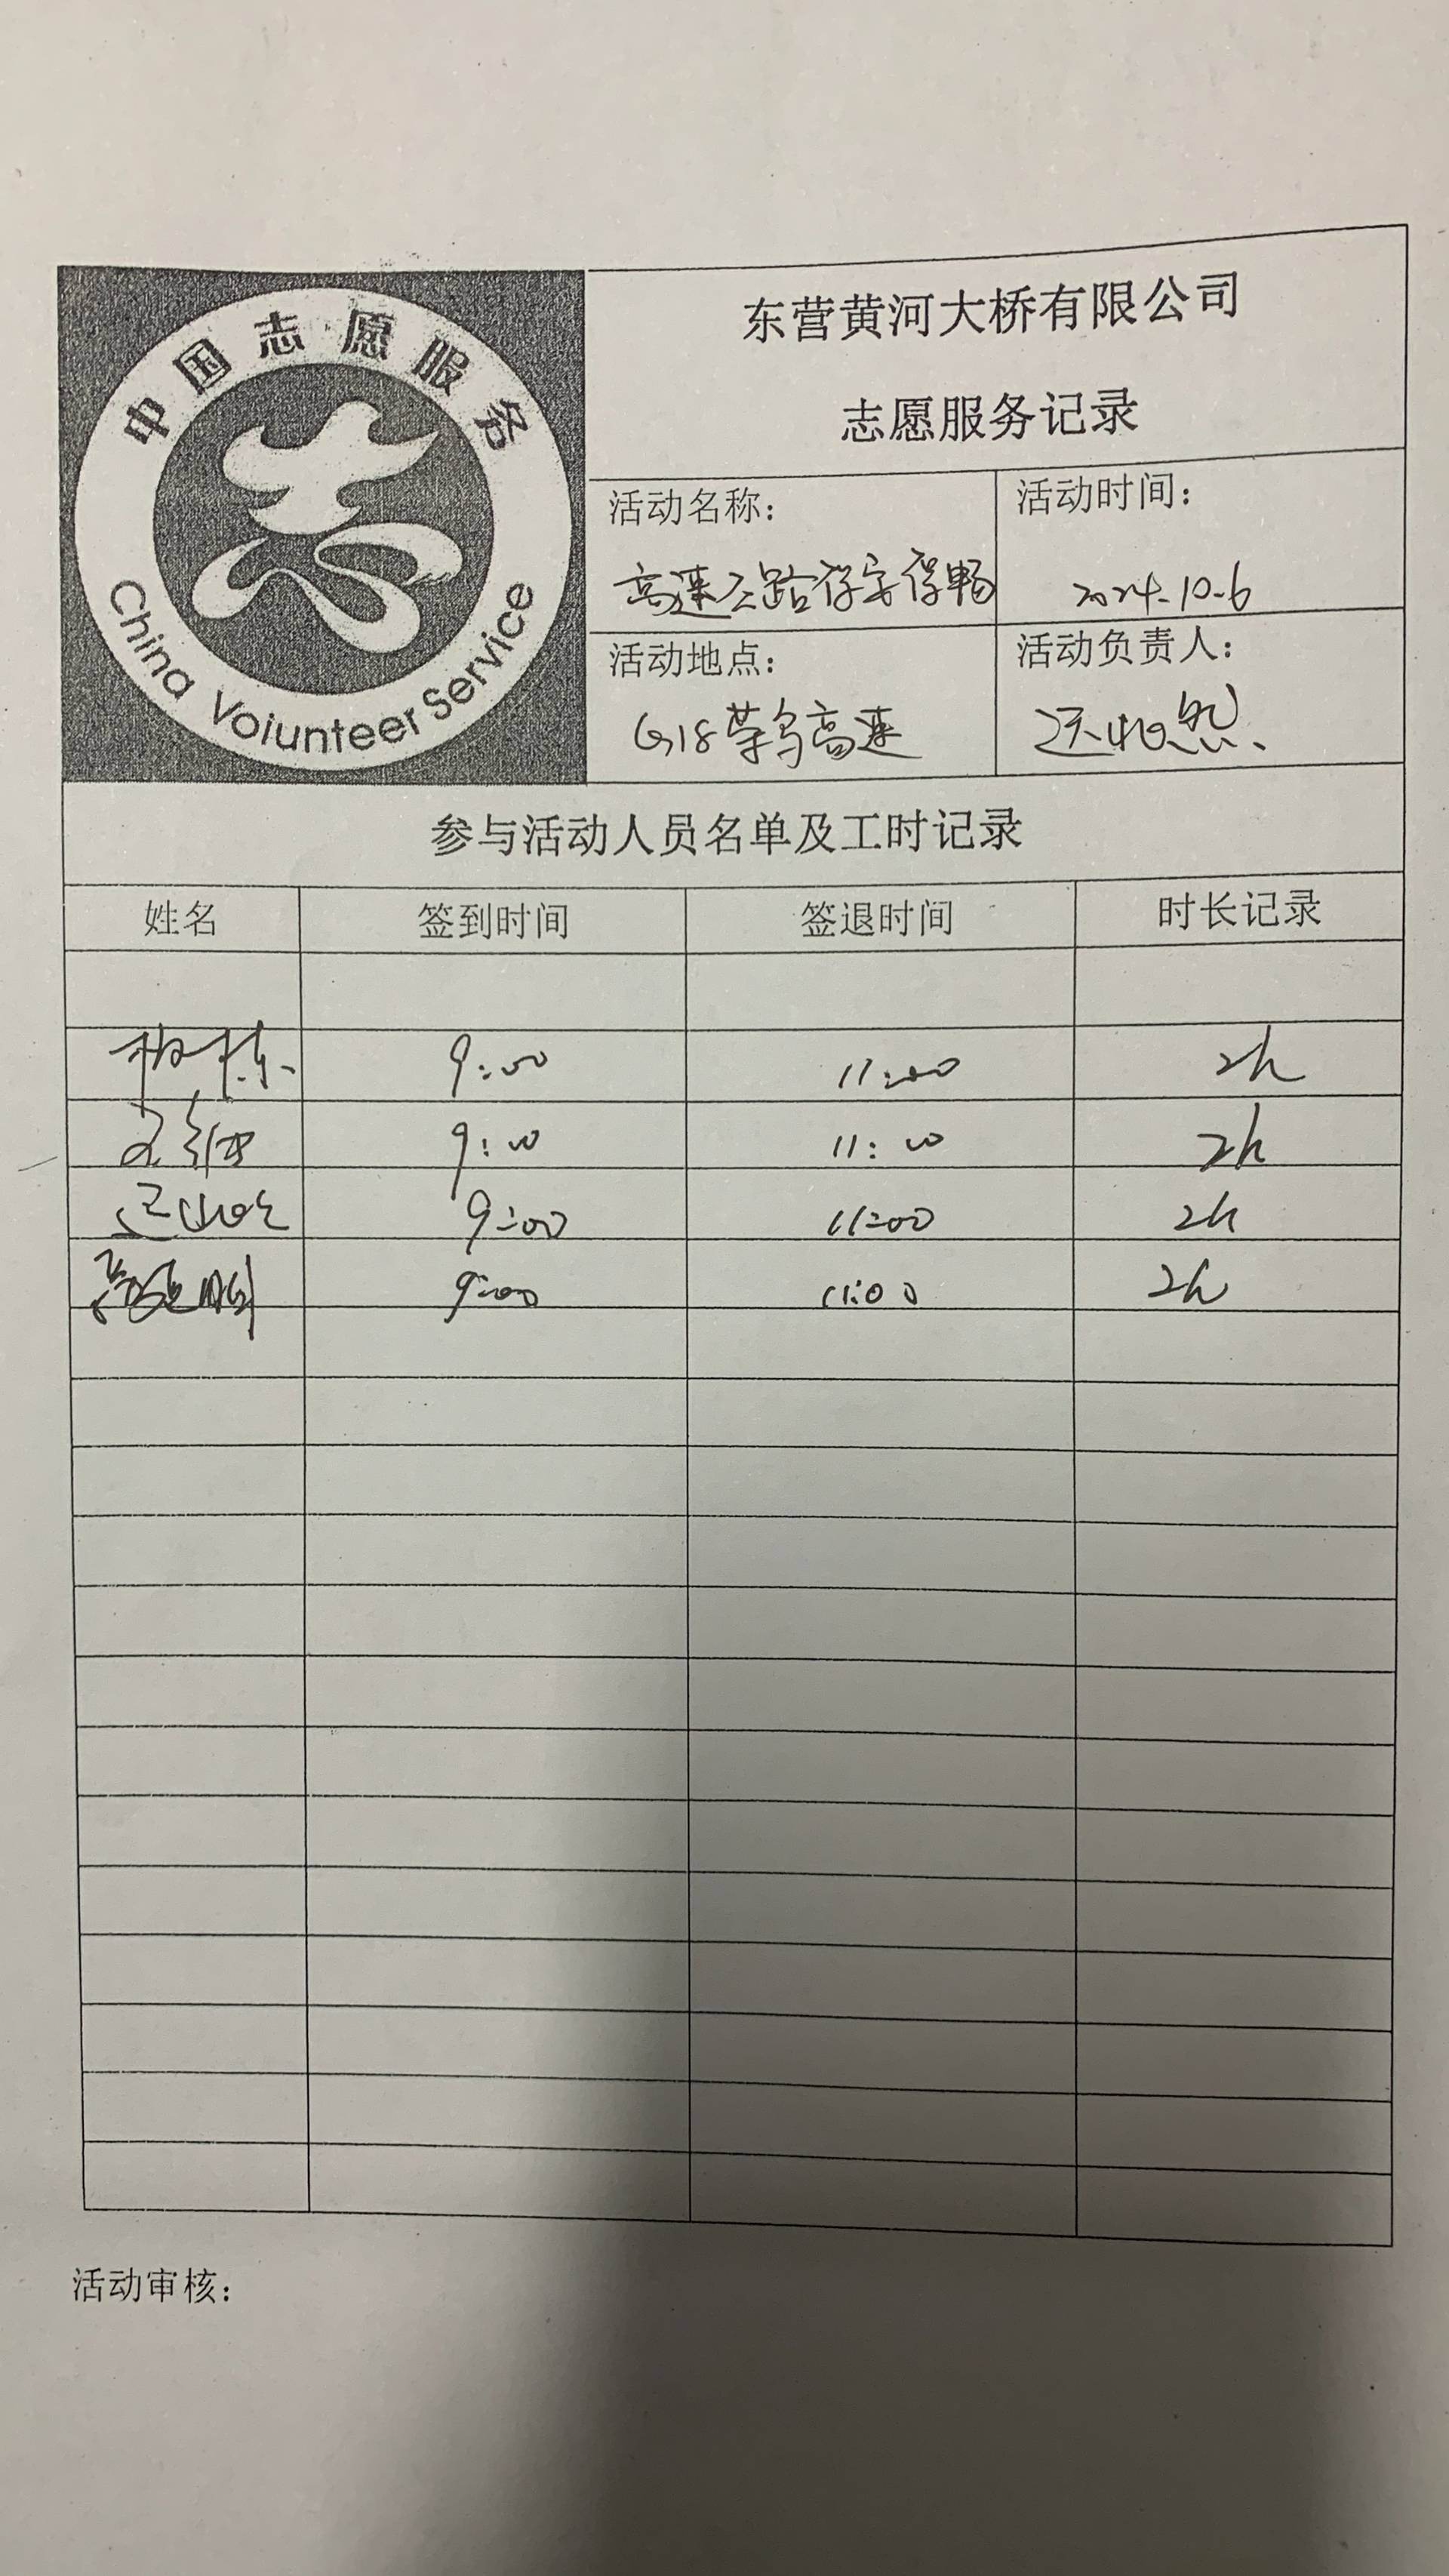 中国志愿服务
China Voiunteer Service
东营黄河大桥有限公司
志愿服务记录
活动名称：
高速公路保安保畅
活动时间：
2024.10.6
活动地点：
G18荣乌高速
活动负责人：
参与活动人员名单及工时记录
姓名 签到时间 签退时间 时长记录
9:00 11:00 2h
9:00 11:00 2h
9:00 11:00 2h
9:00 11:00 2h
活动审核：